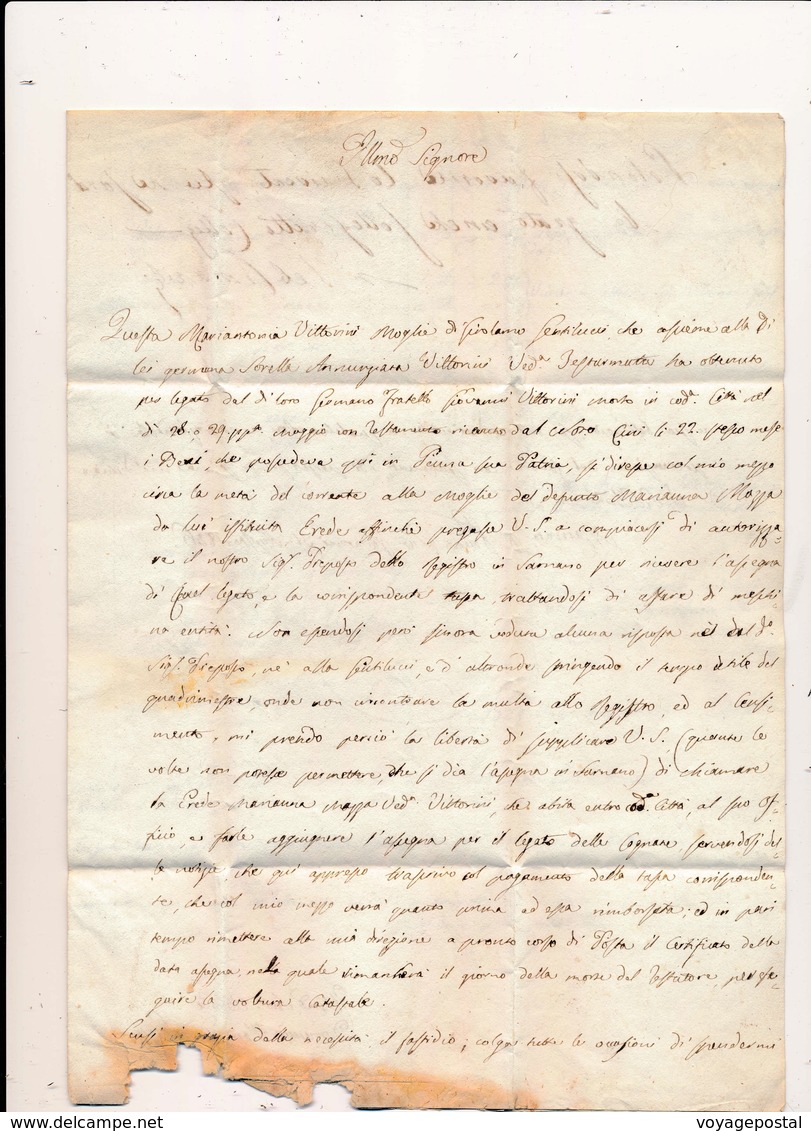 Illmo Signore
Questa Mariantonia Vittorini Moglie di Girolamo Gentilucci, che assieme alla di
lei germana Sorella Annunziata Vittorini Ved.a ha obtenuto
per legato dal di loro Germano Fratello Giovanni Vittorini morto in cod.a Città nel
dì 28 o 29 pp.to Maggio con Testamento ricevuto dal Cini li 22. stesso mese
i Beni, che possedeva qui in Penna sua Patria, si diresse col mio mezzo
circa la metà del corrente alla Moglie del defunto Marianna Mazza
da lui istituita Erede affinchè pregasse V. S. a compiacersi di autorizza=
re il nostro Sig.r Preposto dello Registro in Sarnano per ricevere l'assegna
di quel legato, e la corrispondente tassa, trattandosi di affare di meschi=
na entità. Non essendosi però sinora veduta alcuna risposta nè dal d.o
Sig.r Preposto, nè alla Gentilucci, e d'altronde stringendo il tempo utile del
quadrimestre, onde non incontrare la multa allo Registro, ed al Censi=
mento, mi prendo perciò la libertà di supplicare V. S. (quante le
volte non potesse permettere, che si dia l'assegna in Sarnano) di chiamare
la Erede Marianna Mazza Ved.a Vittorini, che abita entro cod.a Città, al suo Of=
ficio, e farle aggiugnere l'assegna per il legato delle Cognate servendosi del=
le notizie, che quì appresso trascrivo col pagamento della tassa corrisponden=
te, che col mio mezzo verrà quanto prima ad essa rimborsata; ed in pari
tempo rimettere alla mia direzione a pronto corso di Posta il Certificato della
data assegna, nella quale rimanherà il giorno della morte del Testatore, per ese=
guire la voltura Catastale.
Scusi in grazia della necessità il fastidio; colga tutte le occasioni di spendermi
www.delcampe.net
voyagepostal